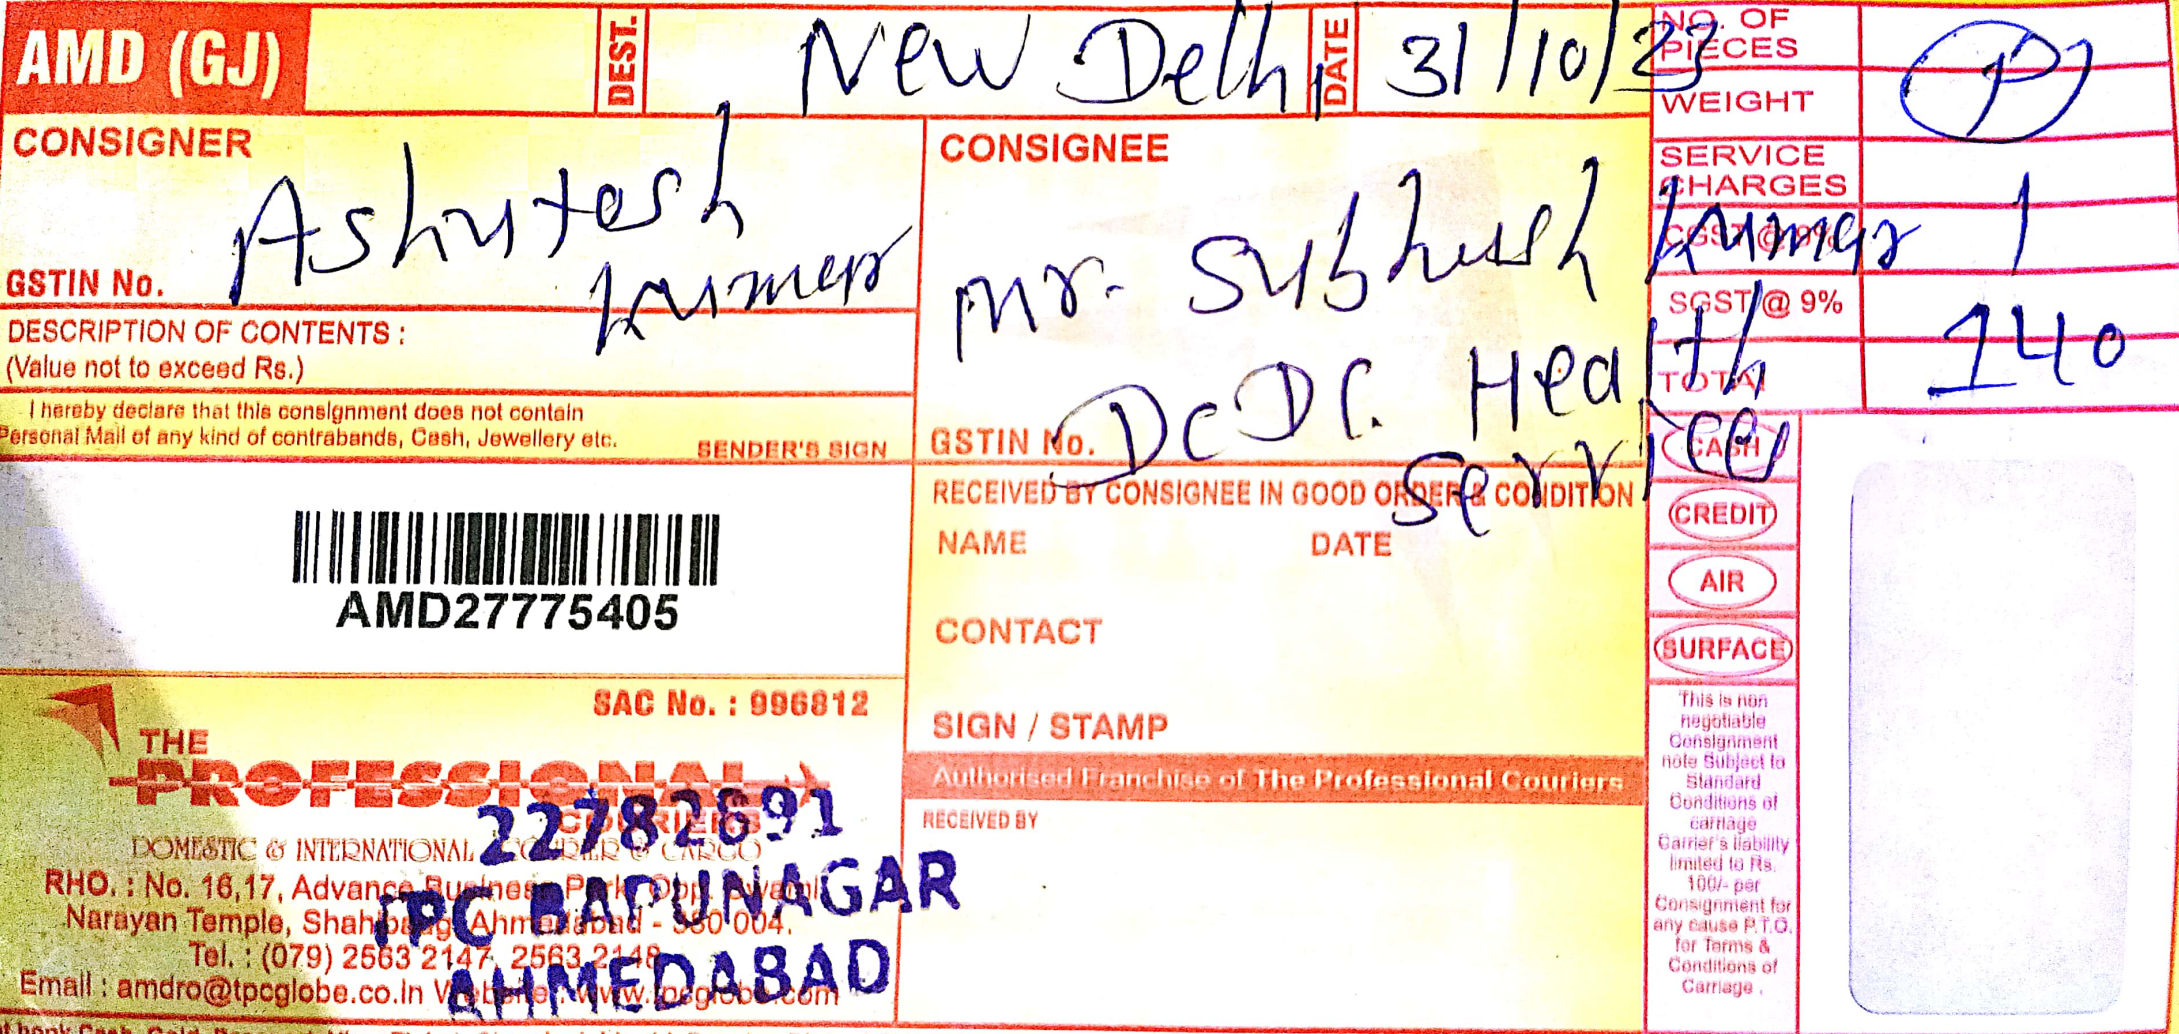 AMD (GJ)
DEST.
New Delhi
DATE
31/10/23
NO. OF PIECES
WEIGHT
SERVICE CHARGES
CGST @ 9%
SGST @ 9%
TOTAL
1
140
CONSIGNER
Ashutosh
Kumar
GSTIN No.
DESCRIPTION OF CONTENTS :
(Value not to exceed Rs.)
I hereby declare that this consignment does not contain
Personal Mail of any kind of contrabands, Cash, Jewellery etc.
SENDER'S SIGN
CONSIGNEE
Mr. Subhash Kumar
DCDC. Health
Services
GSTIN No.
RECEIVED BY CONSIGNEE IN GOOD ORDER & CONDITION
NAME DATE
CONTACT
SIGN / STAMP
Authorised Franchise of The Professional Couriers
RECEIVED BY
CASH
CREDIT
AIR
SURFACE
This is non
negotiable
Consignment
note Subject to
Standard
Conditions of
carriage
Carrier's liability
limited to Rs.
100/- per
Consignment for
any cause P.T.O.
for Terms &
Conditions of
Carriage .
AMD27775405
SAC No. : 996812
THE
PROFESSIONAL
COURIERS
DOMESTIC & INTERNATIONAL COURIER & CARGO
RHO. : No. 16,17, Advance Business Park, Opp. Swami
Narayan Temple, Shahibaug, Ahmedabad - 380 004.
Tel. : (079) 2563 2147, 2563 2148
Email : amdro@tpcglobe.co.in Website : www.tpcglobe.com
22782691
TPC BAPUNAGAR
AHMEDABAD